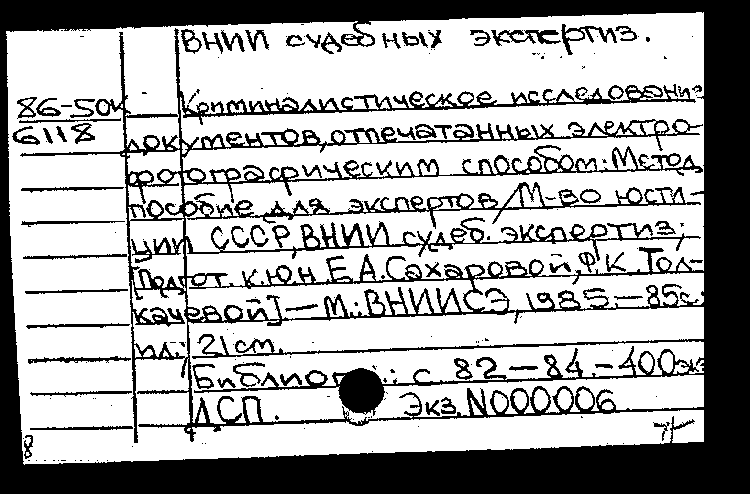 ВНИИ судебных экспертиз.
86-50к
6118
Криминалистическое исследование
документов, отпечатанных электро-
фотографическим способом: Метод.
пособие для экспертов / М-во юсти-
ции СССР, ВНИИ судеб. экспертиз;
[Подгот. к.ю.н. Е.А. Сахаровой, Ф.К. Тол-
качевой] — М.: ВНИИСЭ, 1985. — 85с.:
ил.; 21 см.
Библиогр.: с. 82-84. - 400 экз
ДСП. Экз. N000006
8